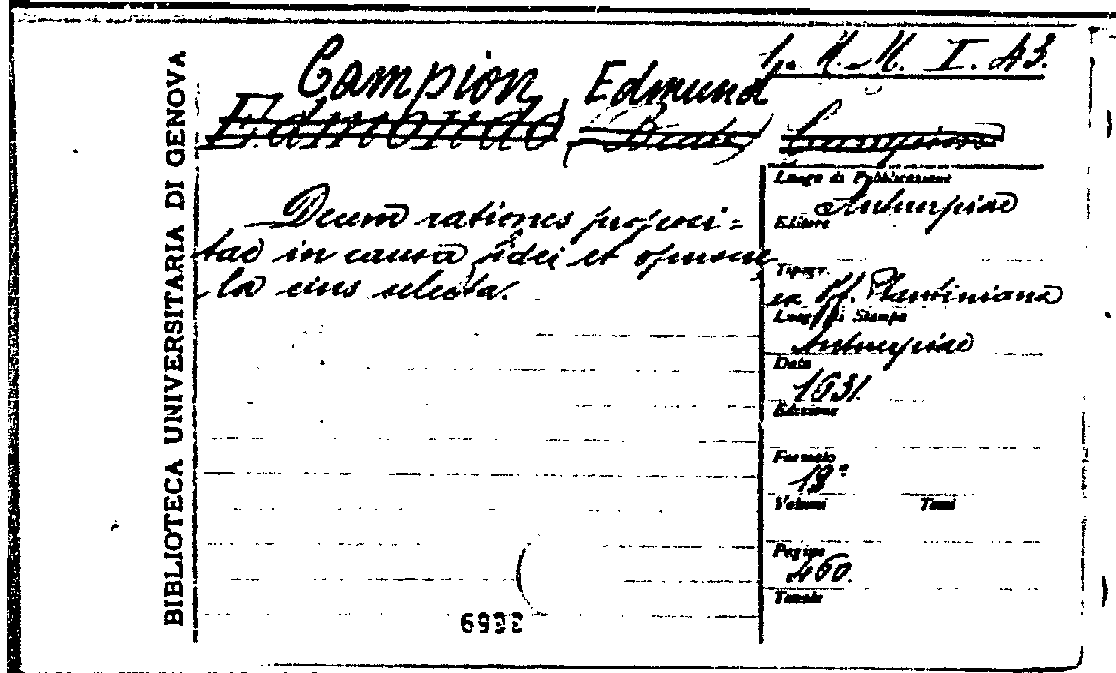 1. K. M. I. 43.
Campion, Edmund
Edmondo (Beato) Campion
BIBLIOTECA UNIVERSITARIA DI GENOVA
Decem rationes proposi=
tae in causa fidei et opuscu
la eius selecta.
Luogo di Pubblicazione
Antuerpiae
Editore
Tipogr.
ex Off. Plantiniana
Luogo di Stampa
Antuerpiae
Data
1631.
Edizione
Formato
Volumi Tomi
Pagine
460.
Tavole